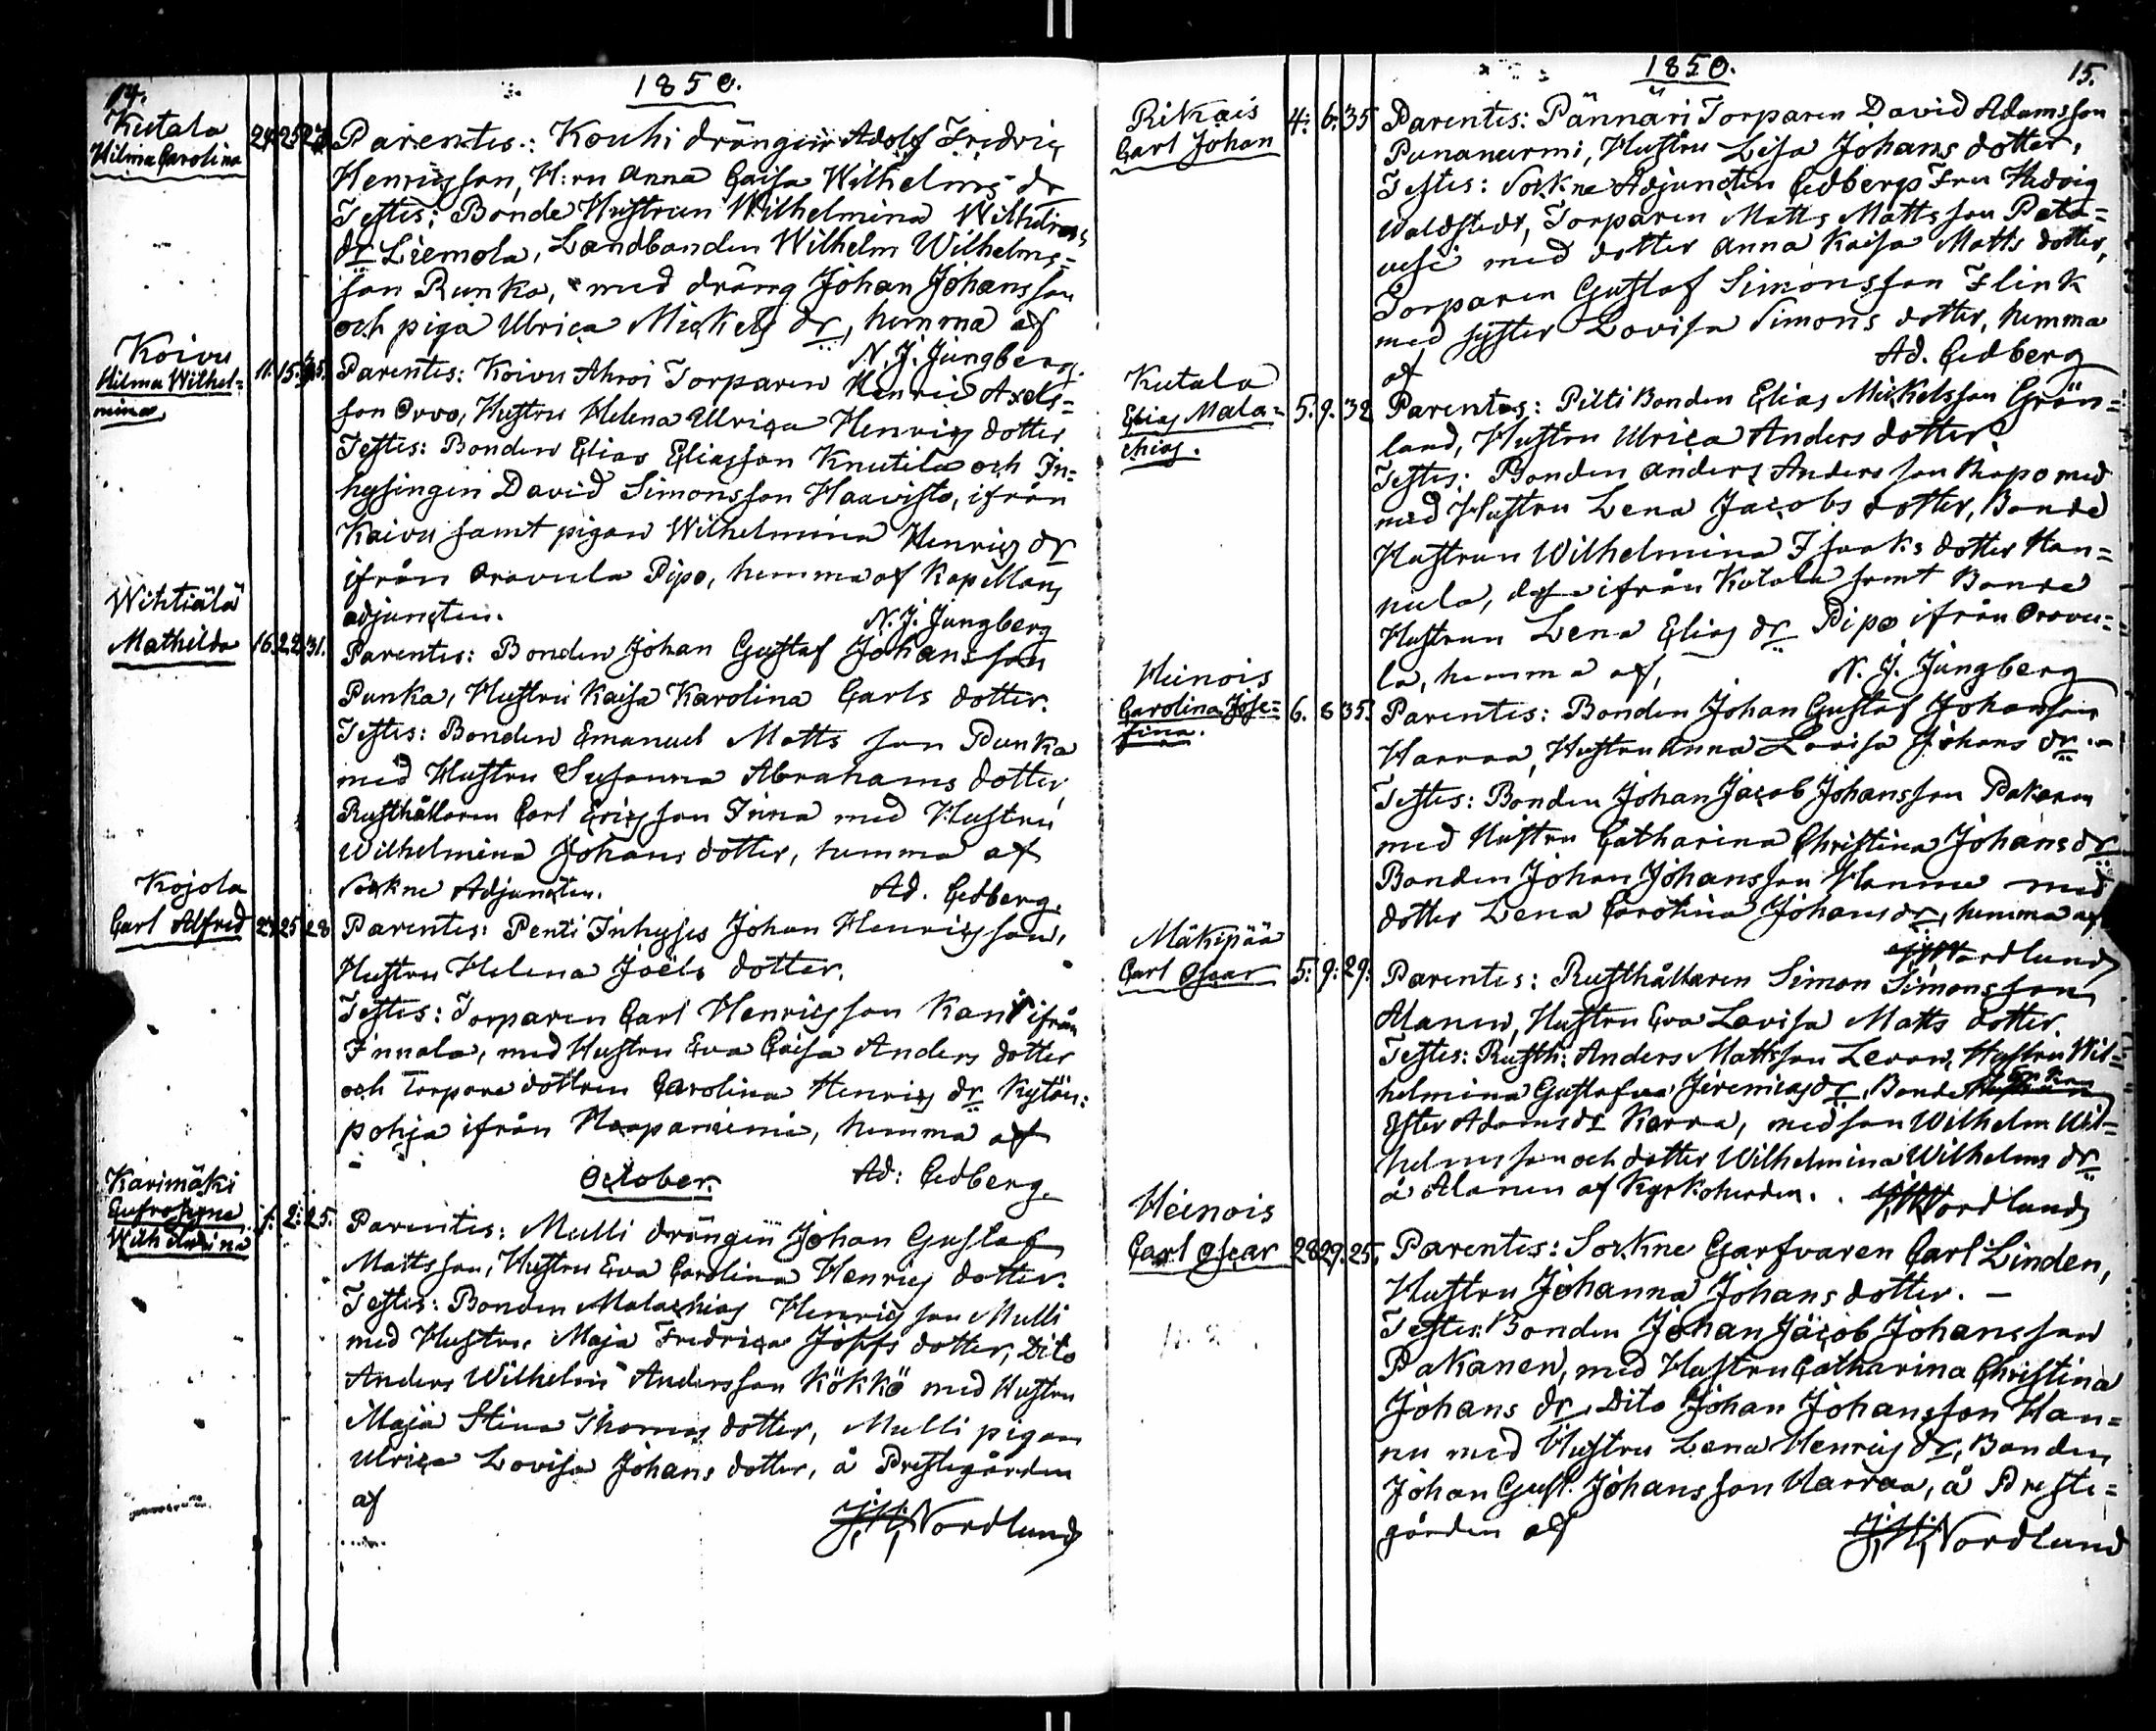 14.
1850.
Kutala
Hilma Carolina
24. 25. 27.
Parentes: Kouhi drängen Adolf Fredric
Henricsson, H:ru Anna Caisa Wilhelms dr
Testes: Bonde Hustrun Wilhelmina Wilhelms
dr Liemola, Landbonden Wilhelm Wilhelms=
son Runka, med dräng Johan Johansson
och piga Ulrica Mickels dr, hemma af
N. J. Jungberg.
Koivu
Hilma Wilhel=
mina
11. 15.
Parentes: Koivu Ahroi Torparen Henric Axels=
son Orvo, Hustru Helena Ulrica Henrics dotter
Testes: Bonden Elias Eliasson Knutila och In=
hysingen David Simonsson Haavisto, ifrån
Koivu samt pigan Wilhelmina Henrics dr
ifrån Oravula Pipo, hemma af Kapellans
adjuncten.
N. J. Jungberg
Wihtiälä
Mathilda
16. 22. 31.
Parentes: Bonden Johan Gustaf Johansson
Punka, Hustru Kaisa Karolina Carls dotter.
Testes: Bonden Emanuel Matts son Punka
med Hustru Susanna Abrahams dotter,
Rusthållaren Carl Ericsson Inna med Hustru
Wilhelmina Johans dotter, hemma af
Sockne Adjuncten.
Ad. Cedberg.
Kojola
Carl Alfred
24. 25. 28
Parentes: Penti Inhyses Johan Henricsson,
Hustru Helena Joëls dotter.
Testes: Torparen Carl Henricsson Kani ifrån
Innala, med Hustru Eva Caisa Anders dotter
och Torpare dottren Carolina Henrics dr Kytön=
pohja ifrån Haapaniemi, hemma af
Ad: Cedberg.
October.
Karimäki
Eufrosyne
Wilhelmina
1. 2. 25.
Parentes: Mulli drängen Johan Gustaf
Mattsson, Hustru Eva Carolina Henrics dotter.
Testes: Bonden Malachias Henricsson Mulli
med Hustru Maja Fredrica Josefs dotter, Dito
Anders Wilhelm Andersson Kökkö med Hustru
Maja Stina Thomas dotter, Mulli pigan
Ulrica Lovisa Johans dotter, å Prestegården
af
J. H. Nordlund
1850.
15.
Rikais
Carl Johan
4. 6. 35
Parentes: Pännäri Torparen David Adamsson
Punanurmi, Hustru Lisa Johans dotter.
Testes: Sockne Adjuncten Cedbergs Fru Hedvig
Waldstedt, Torparen Matts Mattsson Peta=
vesi med dotter Anna Kaisa Matts dotter,
Torparen Gustaf Simonsson Flink
med syster Lovisa Simons dotter, hemma
af
Ad. Cedberg
Kutala
Elias Mala=
chias.
5. 9. 32
Parentes: Pilti Bonden Elias Mickelsson Grön=
land, Hustru Ulrica Anders dotter.
Testes: Bonden Anders Andersson Knapo med
med Hustru Lena Jacobs dotter, Bonde
Hustrun Wilhelmina Isaaks dotter Han=
nula, ifrån Kutala samt Bonde
Hustrun Lena Elias dr Pipo ifrån Oravu=
la, hemma af,
N. J. Jungberg
Heinois
Carolina Jose=
fina.
6. 8. 35.
Parentes: Bonden Johan Gustaf Johansson
Harraa, Hustru Anna Lovisa Johans dr.
Testes: Bonden Johan Jacob Johansson Pakanen
med Hustru Catharina Christina Johans dr
Bonden Johan Johansson Hannu med
dotter Lena Carolina Johans dr, hemma af
J. H. Nordlund
Mäkipää
Carl Oscar
5. 9. 29.
Parentes: Rusthållaren Simon Simonsson
Alanen, Hustru Eva Lovisa Matts dotter.
Testes: Rusth: Anders Mattsson Levon, Hustru Wil=
helmina Gustafva Jeremias dr, Bonde
Ester Adams dr Karra, med son Wilhelm Wil=
helmsson och dotter Wilhelmina Wilhelms dr
å Alanen af Kyrkoherden.
J. H. Nordlund
Heinois
Carl Oscar
28. 29. 25.
Parentes: Sockne Garfvaren Carl Linden,
Hustru Johanna Johans dotter. —
Testes: Bonden Johan Jacob Johansson
Pakanen, med Hustru Catharina Christina
Johans dr, Dito Johan Johansson Han=
nu med Hustru Lena Henrics dr, Bonden
Johan Gust. Johansson Harraa, å Preste=
gården af
J. H. Nordlund